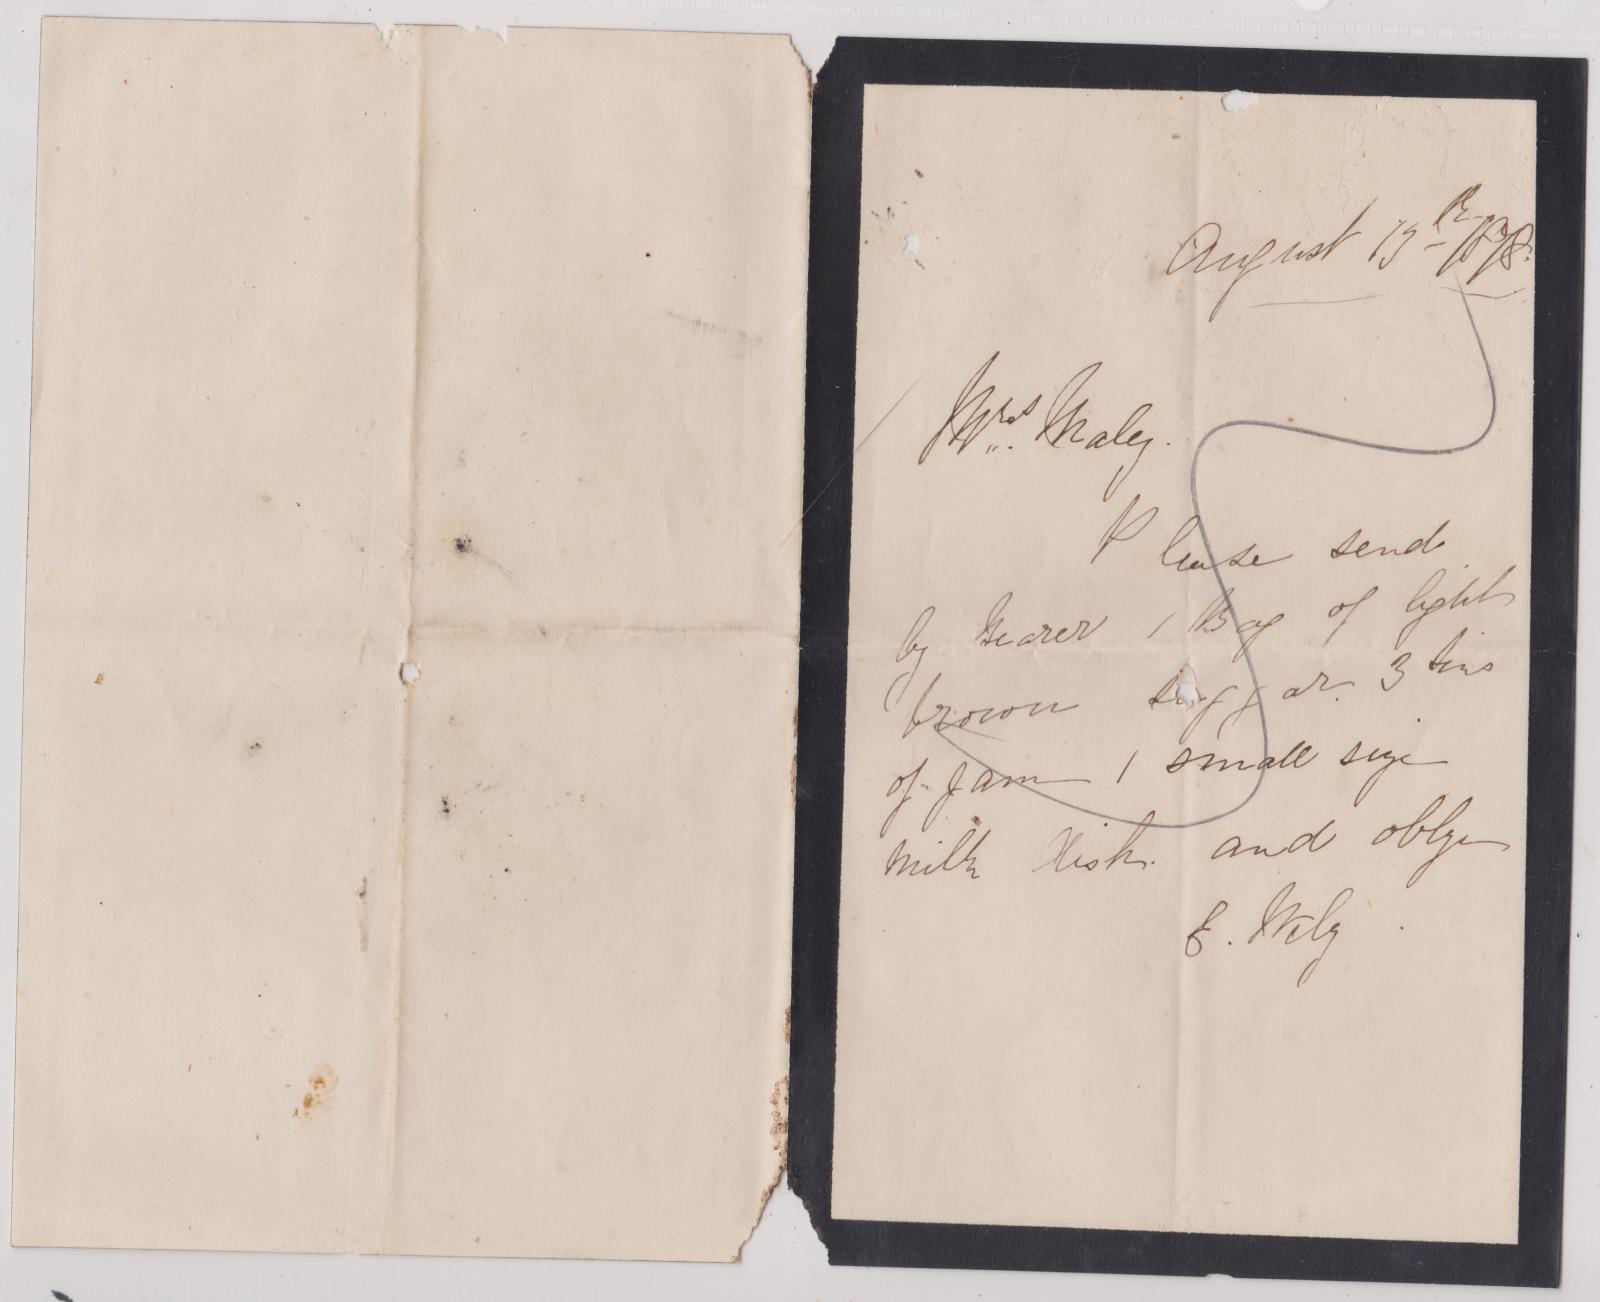 August 13th 1878.
Mrs. Maley.
Please send
by Bearer 1 Bag of light
brown suggar. 3 tins
of Jam 1 small size
milk Dish. and oblige
E. Wely